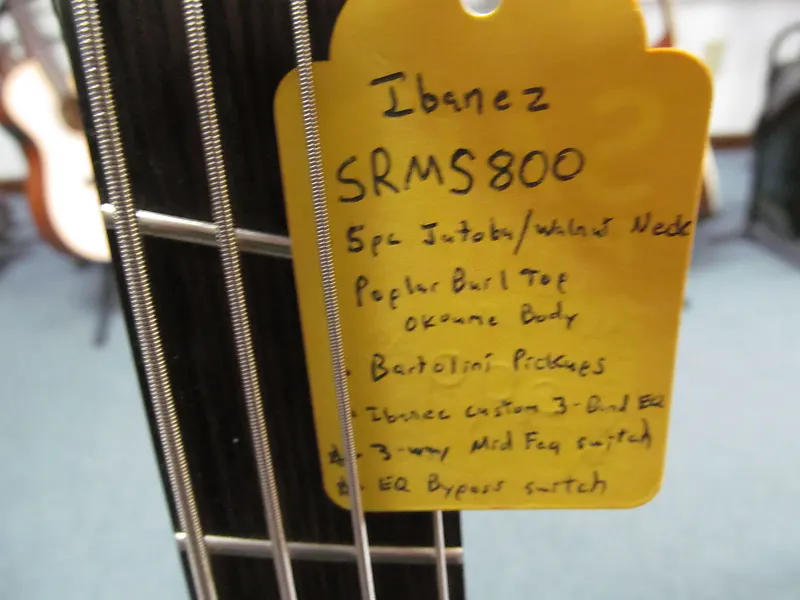 Ibanez
SRMS800
5pc Jatoba/Walnut Neck
Poplar Burl Top
Okoume Body
· Bartolini Pickups
· Ibanez custom 3-Band EQ
· 3-way Mid Feq switch
· EQ Bypass switch